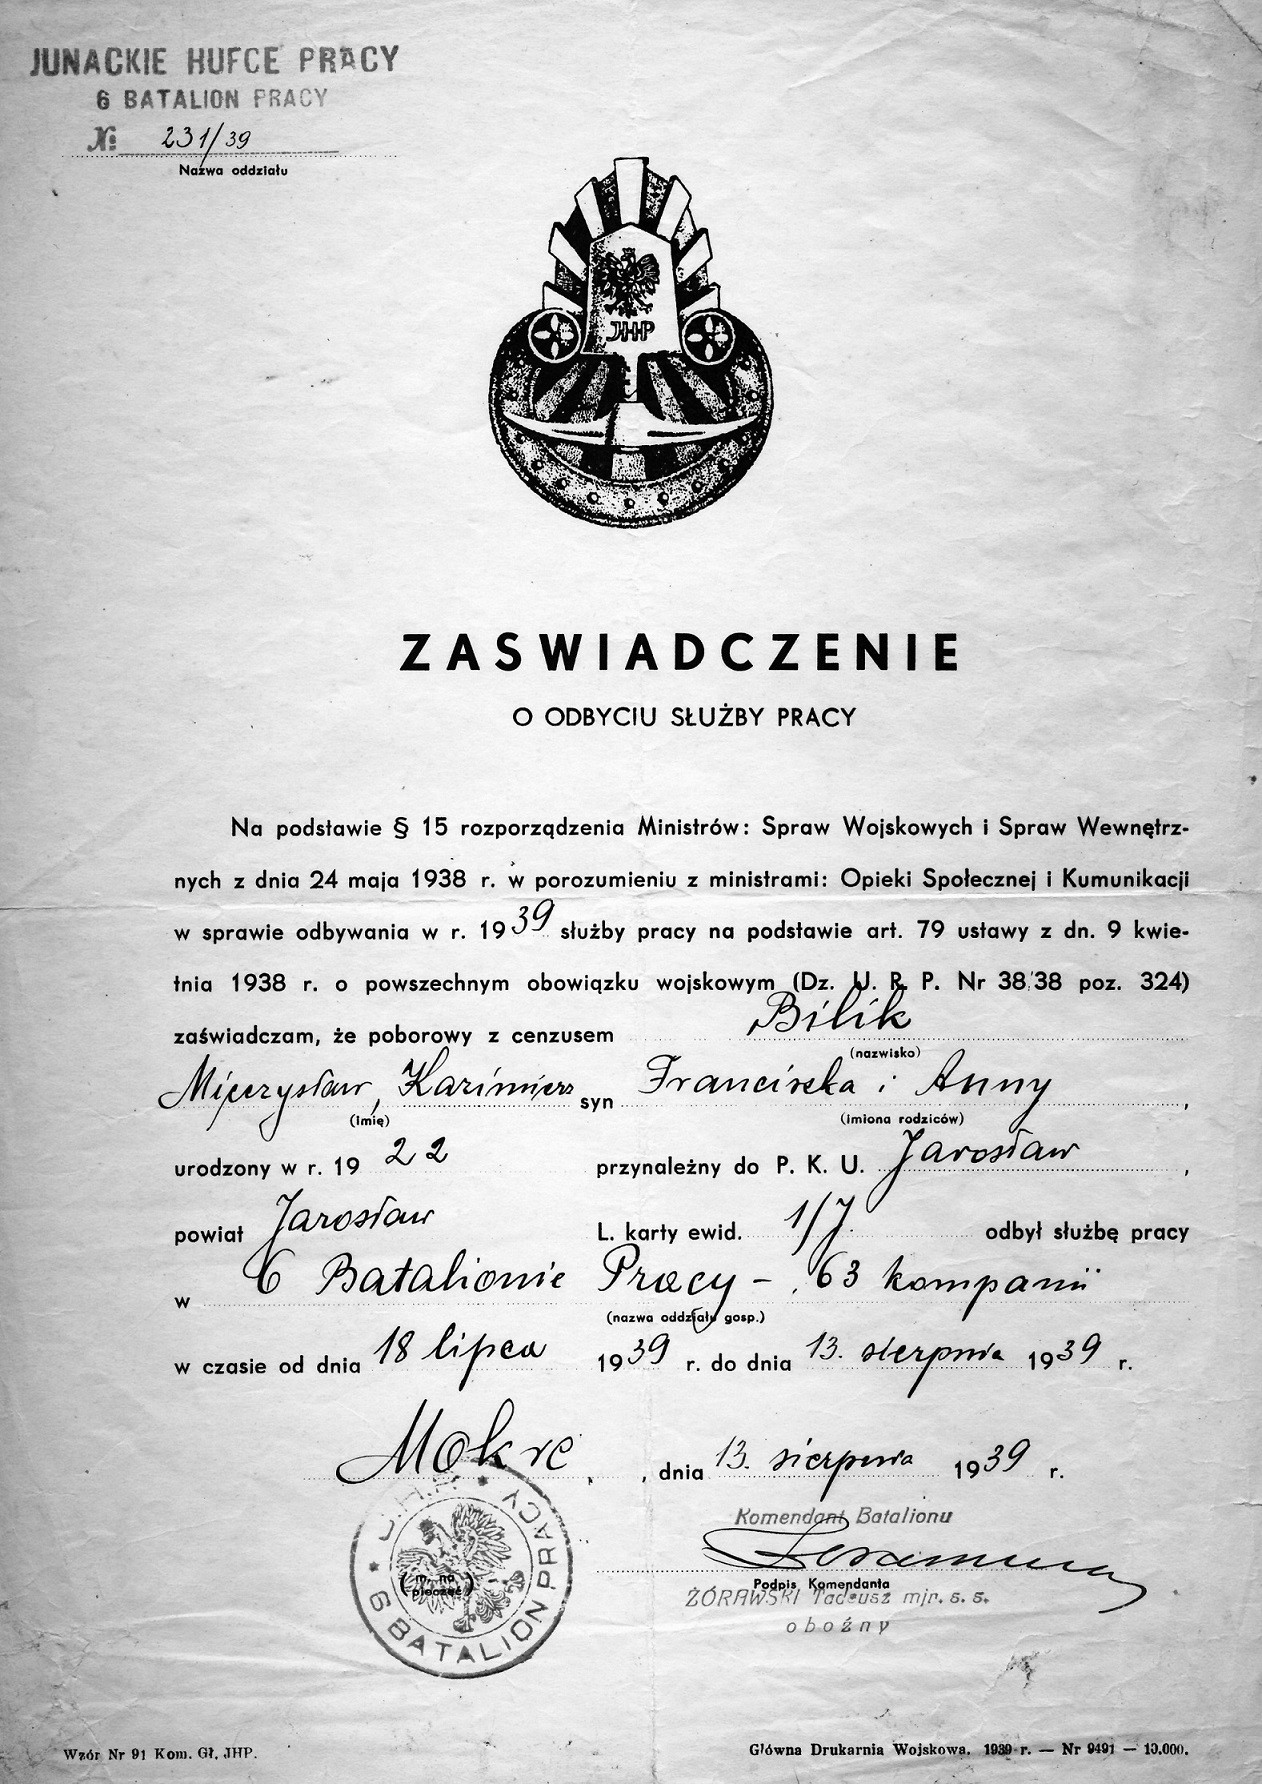 JUNACKIE HUFCE PRACY
6 BATALION PRACY
№ 231/39
Nazwa oddziału
JHP
ZASWIADCZENIE
O ODBYCIU SŁUŻBY PRACY
Na podstawie § 15 rozporządzenia Ministrów: Spraw Wojskowych i Spraw Wewnętrz-
nych z dnia 24 maja 1938 r. w porozumieniu z ministrami: Opieki Społecznej i Kumunikacji
w sprawie odbywania w r. 1939 służby pracy na podstawie art. 79 ustawy z dn. 9 kwie-
tnia 1938 r. o powszechnym obowiązku wojskowym (Dz. U. R. P. Nr 38/38 poz. 324)
zaświadczam, że poborowy z cenzusem Bilik
(nazwisko)
Mieczysław, Kazimierz syn Franciszka i Anny,
(imię) (imiona rodziców)
urodzony w r. 1922 przynależny do P. K. U. Jarosław,
powiat Jarosław L. karty ewid. 1/J. odbył służbę pracy
w 6 Batalionie Pracy – 63 kompanii
(nazwa oddziału gosp.)
w czasie od dnia 18 lipca 1939 r. do dnia 13. sierpnia 1939 r.
Mokre, dnia 13. sierpnia 1939 r.
Komendant Batalionu
Podpis Komendanta
ŻÓRAWSKI Tadeusz mjr. s. s.
oboźny
(m. na pieczęć)
J.H.P. * 6 BATALION PRACY *
Wzór Nr 91 Kom. Gł. JHP.
Główna Drukarnia Wojskowa. 1939 r. — Nr 9491 — 10.000.